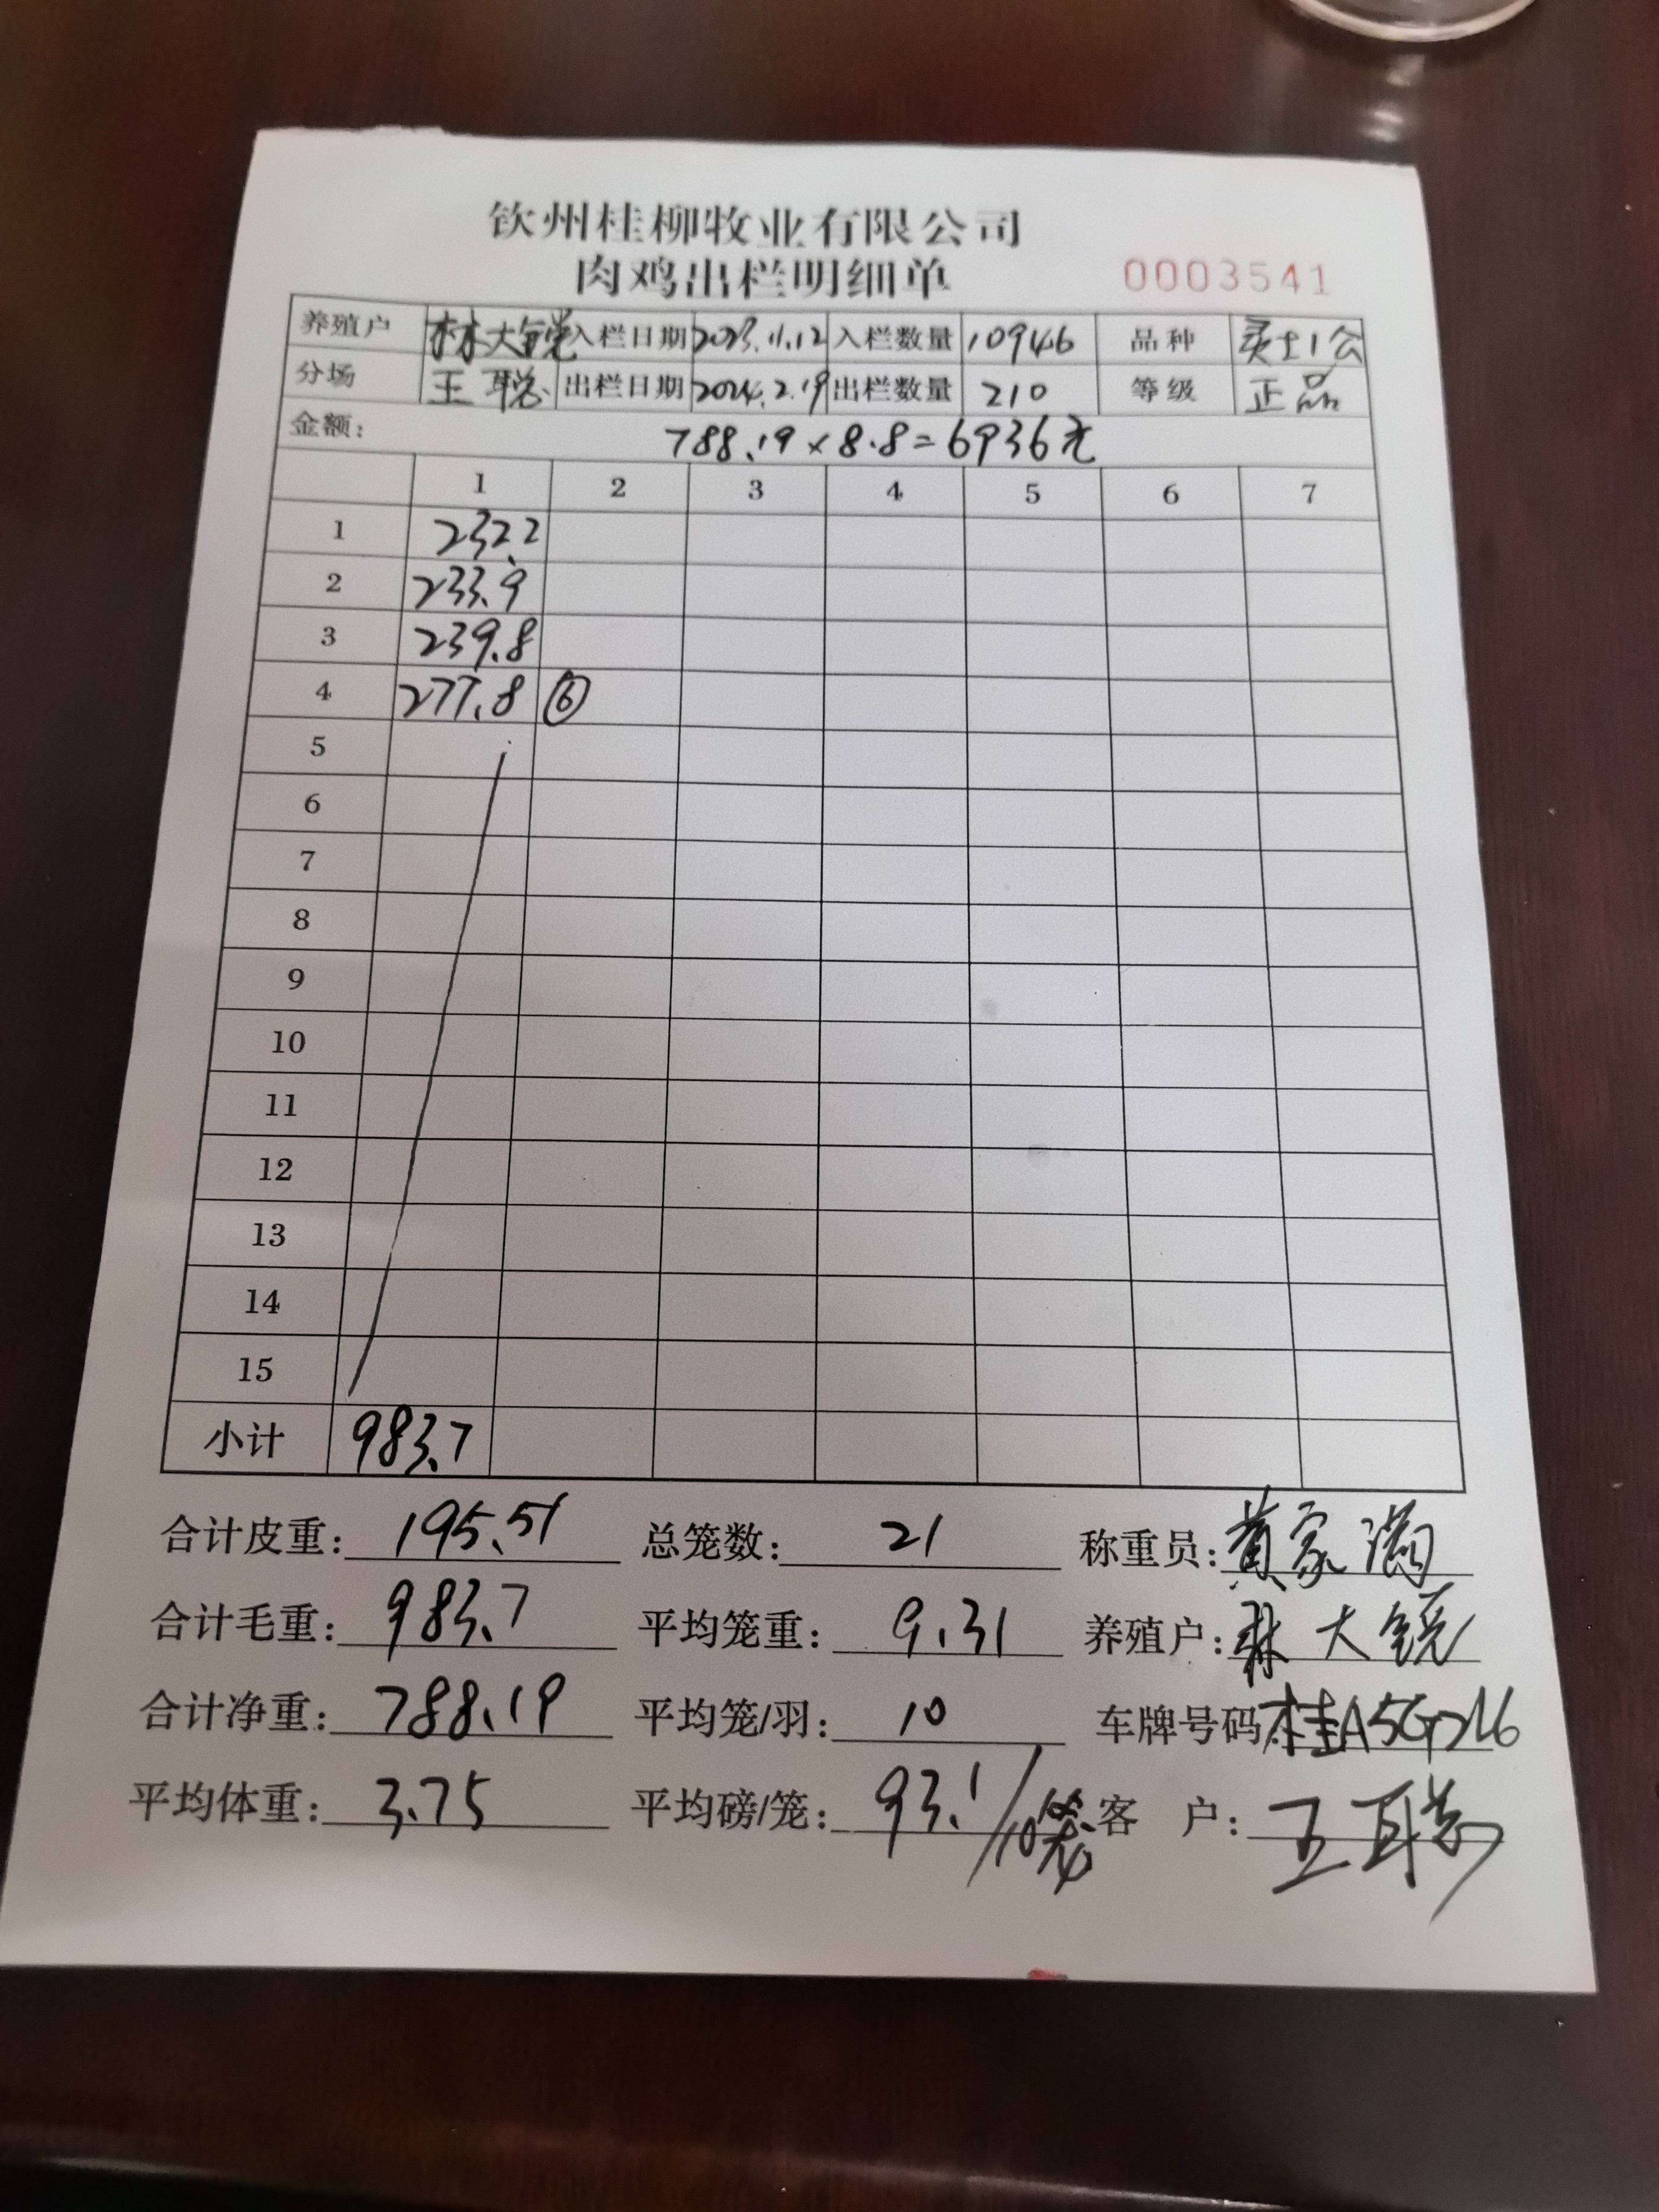 钦州桂柳牧业有限公司
肉鸡出栏明细单 0003541
养殖户 林大锐 入栏日期 2023.11.12 入栏数量 10946 品种 灵土1公
分场 王聪 出栏日期 2024.2.19 出栏数量 210 等级 正品
金额: 788.19×8.8=6936元
1 2 3 4 5 6 7
1 232.2
2 233.9
3 239.8
4 277.8 ⑥
5
6
7
8
9
10
11
12
13
14
15
小计 983.7
合计皮重: 195.51 总笼数: 21 称重员: 黄家满
合计毛重: 983.7 平均笼重: 9.31 养殖户: 林大锐
合计净重: 788.19 平均笼/羽: 10 车牌号码: 桂A5G
平均体重: 3.75 平均磅/笼: 93.1/10笼 客 户: 王聪